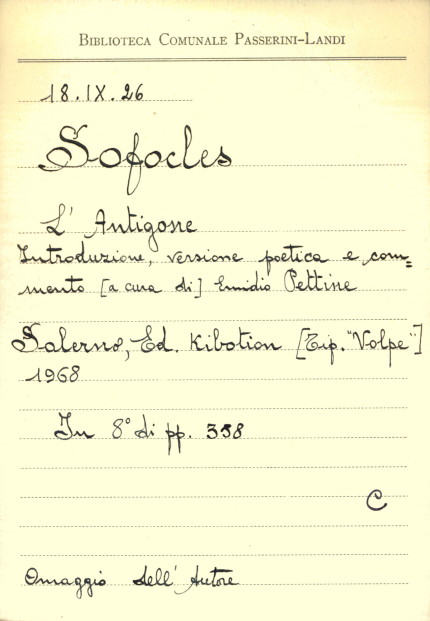 BIBLIOTECA COMUNALE PASSERINI-LANDI
18.IX.26
Sofocles
L' Antigone
Introduzione, versione poetica e com=
mento [a cura di] Emidio Pettine
Salerno, Ed. Kibotion [Tip. "Volpe"]
1968
In 8° di pp. 338
C
Omaggio dell' Autore